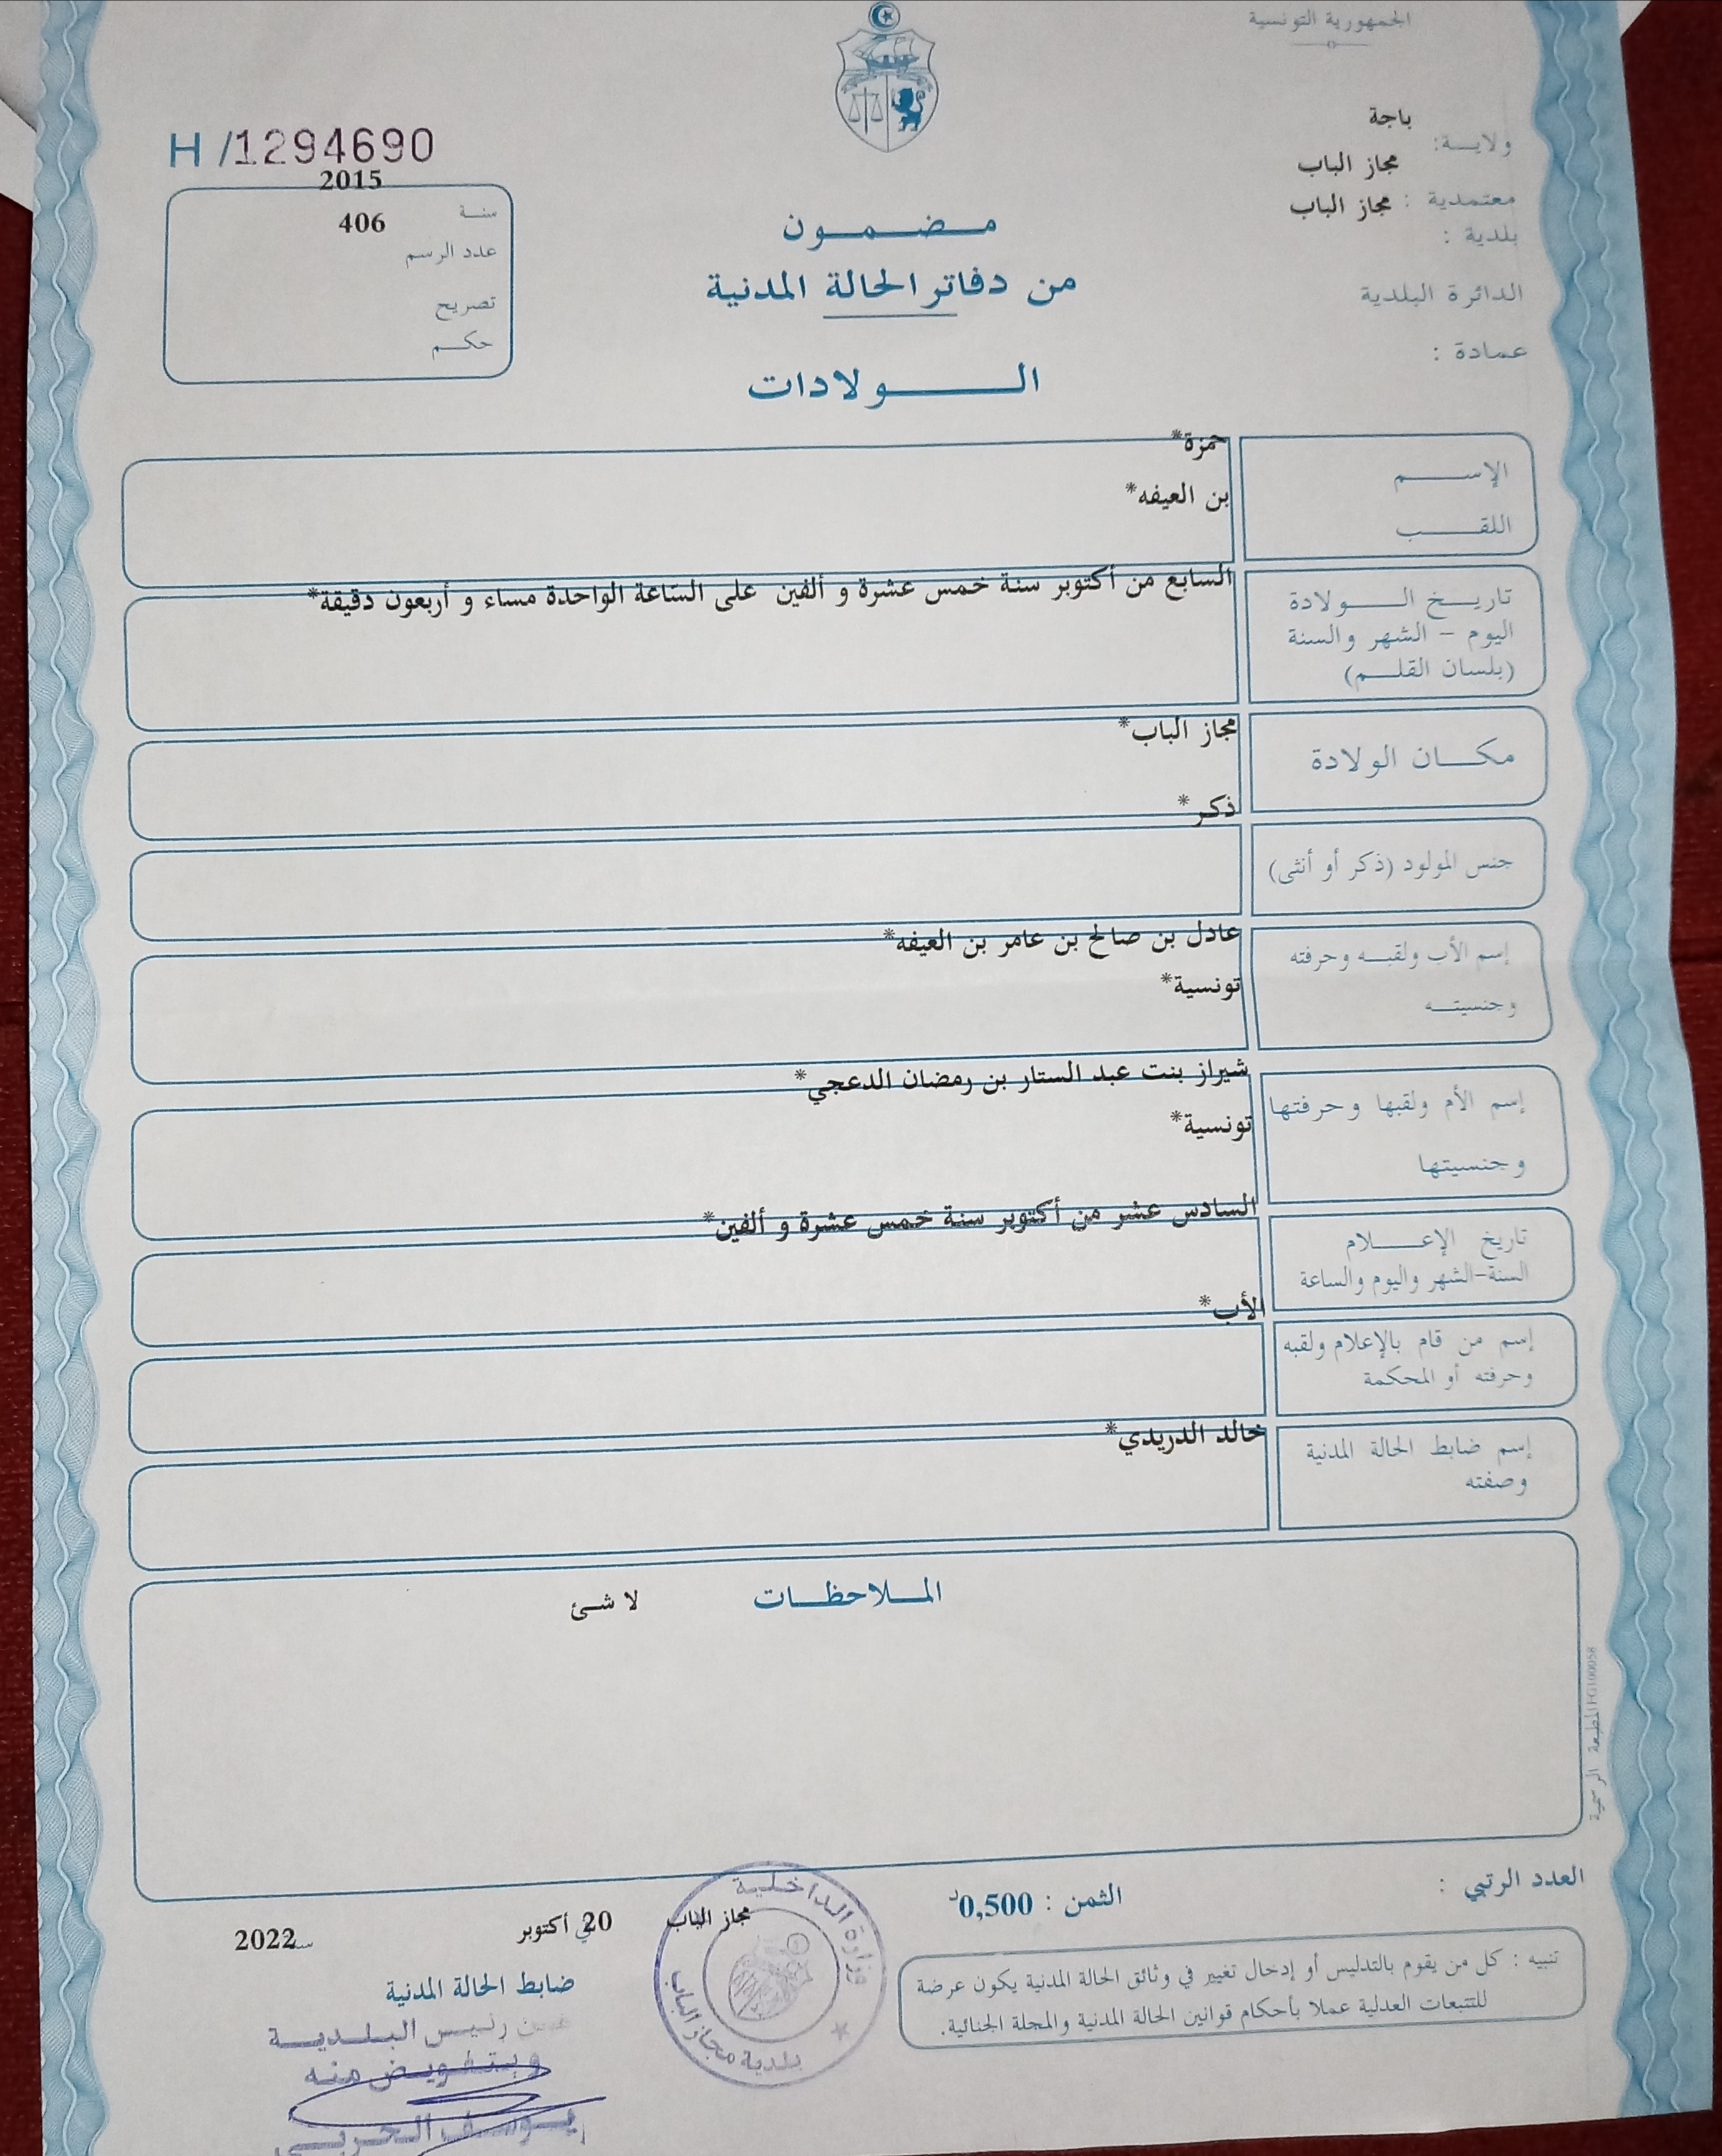 الجمهورية التونسية
ولاية: باجة
معتمدية : مجاز الباب
بلدية : مجاز الباب
الدائرة البلدية
عمادة :
H /1294690
سنة 2015
عدد الرسم 406
تصريح
حكم
مضمون
من دفاتر الحالة المدنية
الولادات
الإسم
حمزة*
اللقب
بن العيفه*
تاريخ الولادة
اليوم - الشهر والسنة
(بلسان القلم)
السابع من أكتوبر سنة خمس عشرة و ألفين على الساعة الواحدة مساء و أربعون دقيقة*
مكان الولادة
مجاز الباب*
جنس المولود (ذكر أو أنثى)
ذكر*
إسم الأب ولقبه وحرفته
وجنسيته
عادل بن صالح بن عامر بن العيفه*
تونسية*
إسم الأم ولقبها وحرفتها
وجنسيتها
شيراز بنت عبد الستار بن رمضان الدعجي*
تونسية*
تاريخ الإعلام
السنة-الشهر واليوم والساعة
السادس عشر من أكتوبر سنة خمس عشرة و ألفين*
إسم من قام بالإعلام ولقبه
وحرفته أو المحكمة
الأب*
إسم ضابط الحالة المدنية
وصفته
خالد الدريدي*
الملاحظات
لا شئ
المطبعة الرسمية
العدد الرتبي :
الثمن : 0,500د
تنبيه : كل من يقوم بالتدليس أو إدخال تغيير في وثائق الحالة المدنية يكون عرضة
للتتبعات العدلية عملا بأحكام قوانين الحالة المدنية والمجلة الجنائية.
مجاز الباب في 20 أكتوبر سنة 2022
ضابط الحالة المدنية
عن رئيس البلدية
وبتفويض منه
يوسف الحربي
وزارة الداخلية
بلدية مجاز الباب